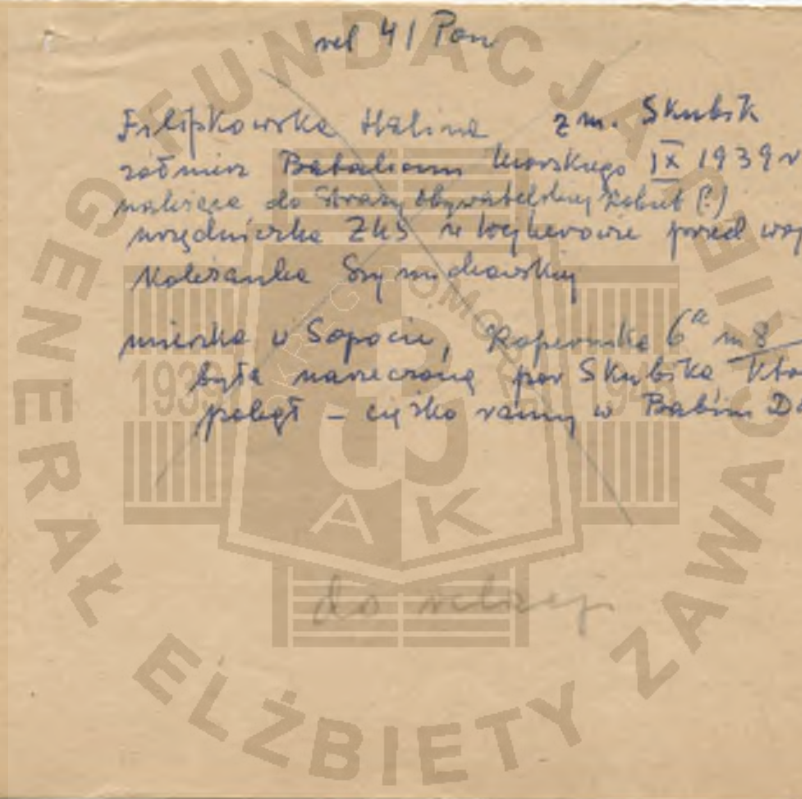 rel 41 Pom
Filipkowska Halina zm. Skubik
żołnierz Batalionu Morskiego IX 1939 r
należąca do Straży Obywatelskiej Kobiet (?)
urzędniczka ZUS w Wejherowie przed woj
Koleżanka Szymichowskiej
mieszka w Sopocie, Kopernika 6a m 8
była narzeczoną por Skubika kto
poległ – ciężko ranny w Babim Do
do relacji
FUNDACJA GENERAŁ ELŻBIETY ZAWACKIEJ
1939 194
AK